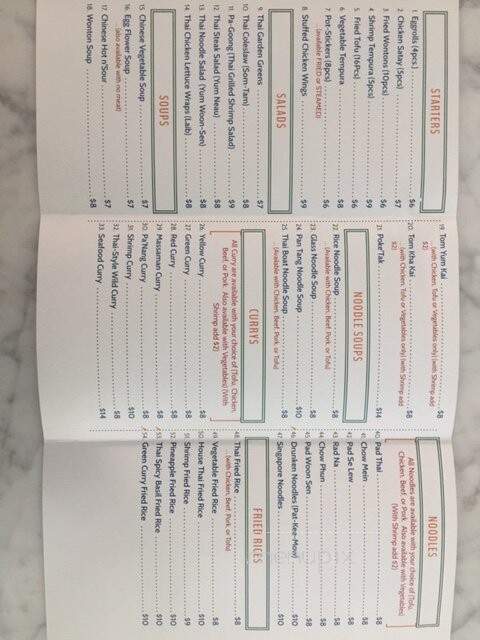 STARTERS
1. Eggrolls (4pcs)........ $6
2. Chicken Satay (5pcs)........ $7
3. Fried Wontons (10pcs)........ $6
4. Shrimp Tempura (5pcs)........ $9
5. Fried Tofu (16Pcs)........ $6
6. Vegetable Tempura........ $8
7. Pot-Stickers (8pcs)........ $6
...(available FRIED or STEAMED)
8. Stuffed Chicken Wings........ $9
SALADS
9. Thai Garden Greens........ $7
10. Thai Coleslaw (Som-Tam)........ $8
11. Pa-Goong (Thai Grilled Shrimp Salad)........ $9
12. Thai Steak Salad (Yum Neau)........ $8
13. Thai Noodle Salad (Yum Woon-Sen)........ $8
14. Thai Chicken Lettuce Wraps (Laib)........ $8
SOUPS
15. Chinese Vegetable Soup........ $7
16. Egg Flower Soup........ $7
(also available with no meat)
17. Chinese Hot n'Sour........ $7
18. Wonton Soup........ $8
19. Tom Yum Kai........ $8
...(with Chicken, Tofu or Vegetables only) (with Shrimp add $2)
20. Tom Kha Kai........ $8
...(with Chicken, Tofu or Vegetables only) (with Shrimp add $2)
21. Poke'Tak........ $14
NOODLE SOUPS
22. Rice Noodle Soup........ $8
...(Available with Chicken, Beef, Pork, or Tofu)
23. Glass Noodle Soup........ $8
24. Pan Tang Noodle Soup........ $10
25. Thai Boat Noodle Soup........ $8
...(Available with Chicken, Beef, Pork, or Tofu)
CURRYS
All Curry are available with your choice of (Tofu, Chicken,
Beef, or Pork. Also available with Vegetables) (With
Shrimp add $2)
26. Yellow Curry........ $8
27. Green Curry........ $8
28. Red Curry........ $8
29. Massaman Curry........ $8
30. Pa'Nang Curry........ $8
31. Shrimp Curry........ $10
32. Thai-Style Wild Curry........ $8
33. Seafood Curry........ $14
NOODLES
All Noodles are available with your choice of (Tofu,
Chicken, Beef, or Pork. Also available with Vegetables)
(With Shrimp add $2)
40. Pad Thai........ $8
41. Chow Mein........ $8
42. Pad Se Lew........ $8
43. Rad Na........ $8
44. Chow Phun........ $8
45. Pad Woon Sen........ $8
46. Drunken Noodles (Pat-Kee-Mow)........ $10
47. Singapore Noodles........ $10
FRIED RICES
48. Thai Fried Rice........ $8
...(with Chicken, Beef, Pork, or Tofu)
49. Vegetable Fried Rice........ $8
50. House Thai Fried Rice........ $10
51. Shrimp Fried Rice........ $9
52. Pineapple Fried Rice........ $10
53. Thai Spicy Basil Fried Rice........ $10
54. Green Curry Fried Rice........ $10